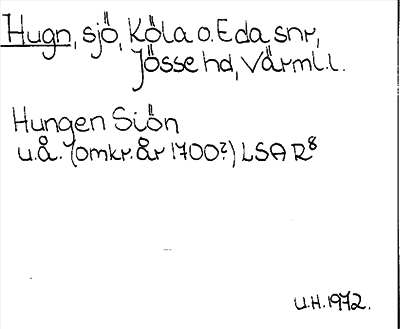 Hugn, sjö, Köla o. Eda snr,
Jösse hd, Värml. l.
Hungen Siön
u.å. (omkr. år 1700?) LSA R8
U.H. 1972.